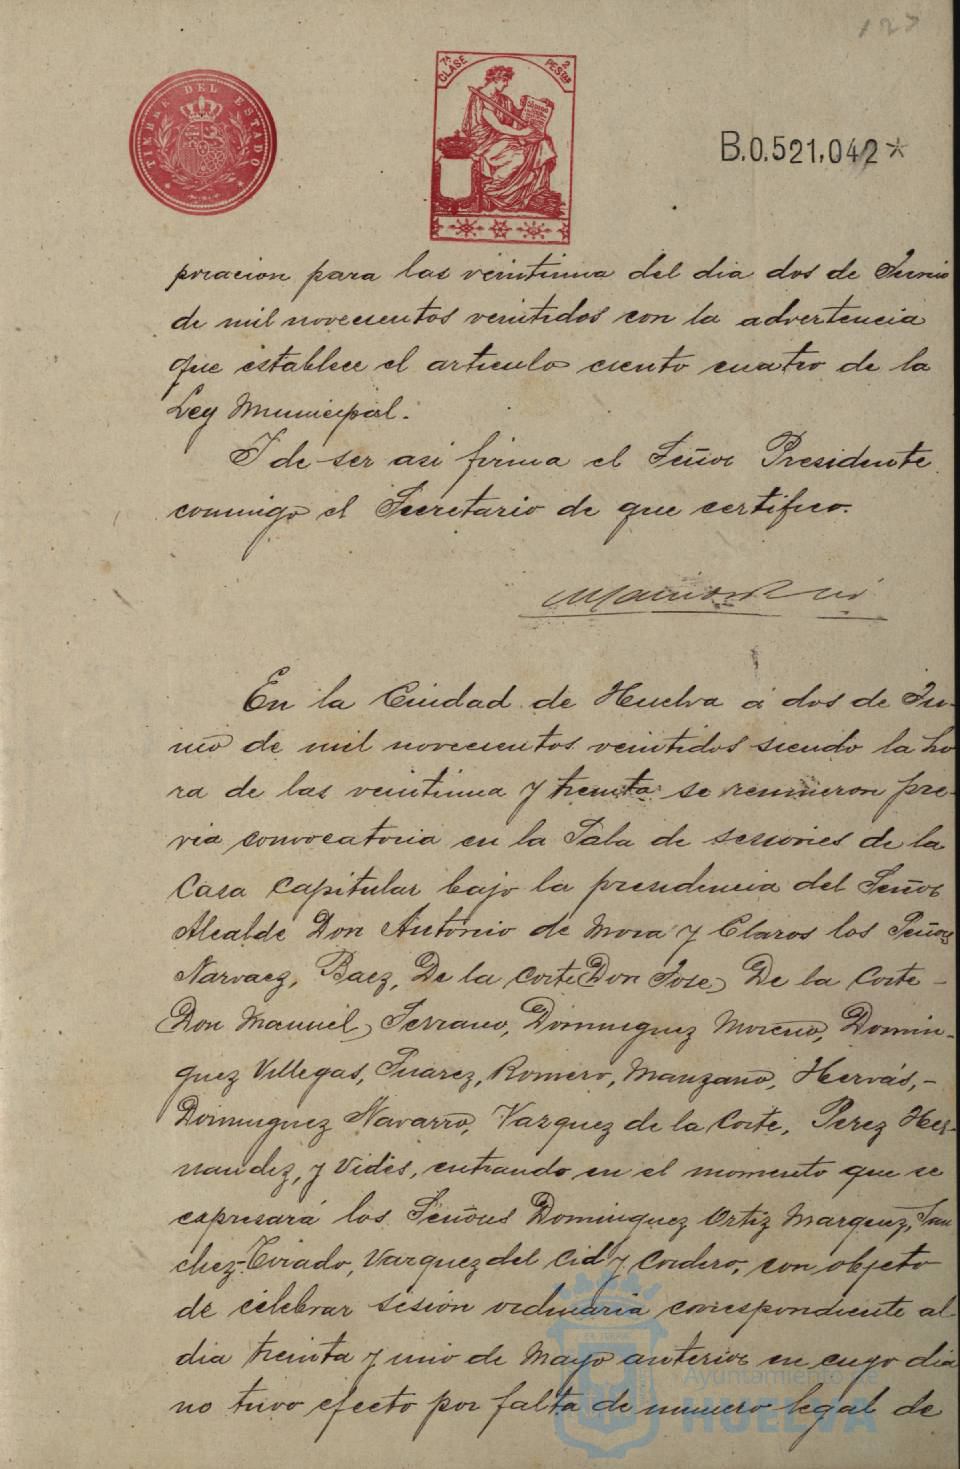 127
TIMBRE DEL ESTADO
7ª CLASE 2 PESTAS
B.0.521,042*
poracion para las veintiuna del dia dos de Junio
de mil novecientos veintidos con la advertencia
que establece el articulo ciento cuatro de la
Ley Municipal.
Y de ser asi firma el Señor Presidente
conmigo el Secretario de que certifico.
En la Ciudad de Huelva á dos de Ju-
nio de mil novecientos veintidos siendo la ho
ra de las veintiuna y treinta se reunieron pre-
via convocatoria en la Sala de sesiones de la
Casa Capitular bajo la presidencia del Señor
Alcalde Don Antonio de Mora y Claros los Señores
Narvaez, Baez, De la Corte (Don Jose) De la Corte -
(Don Manuel) Serrano, Dominguez Moreno, Domin-
guez Villegas, Suarez, Romero, Manzano, Hervás, -
Dominguez Navarro, Vazquez de la Corte, Perez Her-
nandez, y Vides, entrando en el momento que se
expresará los Señores Dominguez Ortiz Marquez, San
chez-Tirado, Vazquez del Cid y Cordero, con objeto
de celebrar sesión ordinaria correspondiente al
dia treinta y uno de Mayo anterior en cuyo dia
no tuvo efecto por falta de numero legal de
Ayuntamiento de
HUELVA